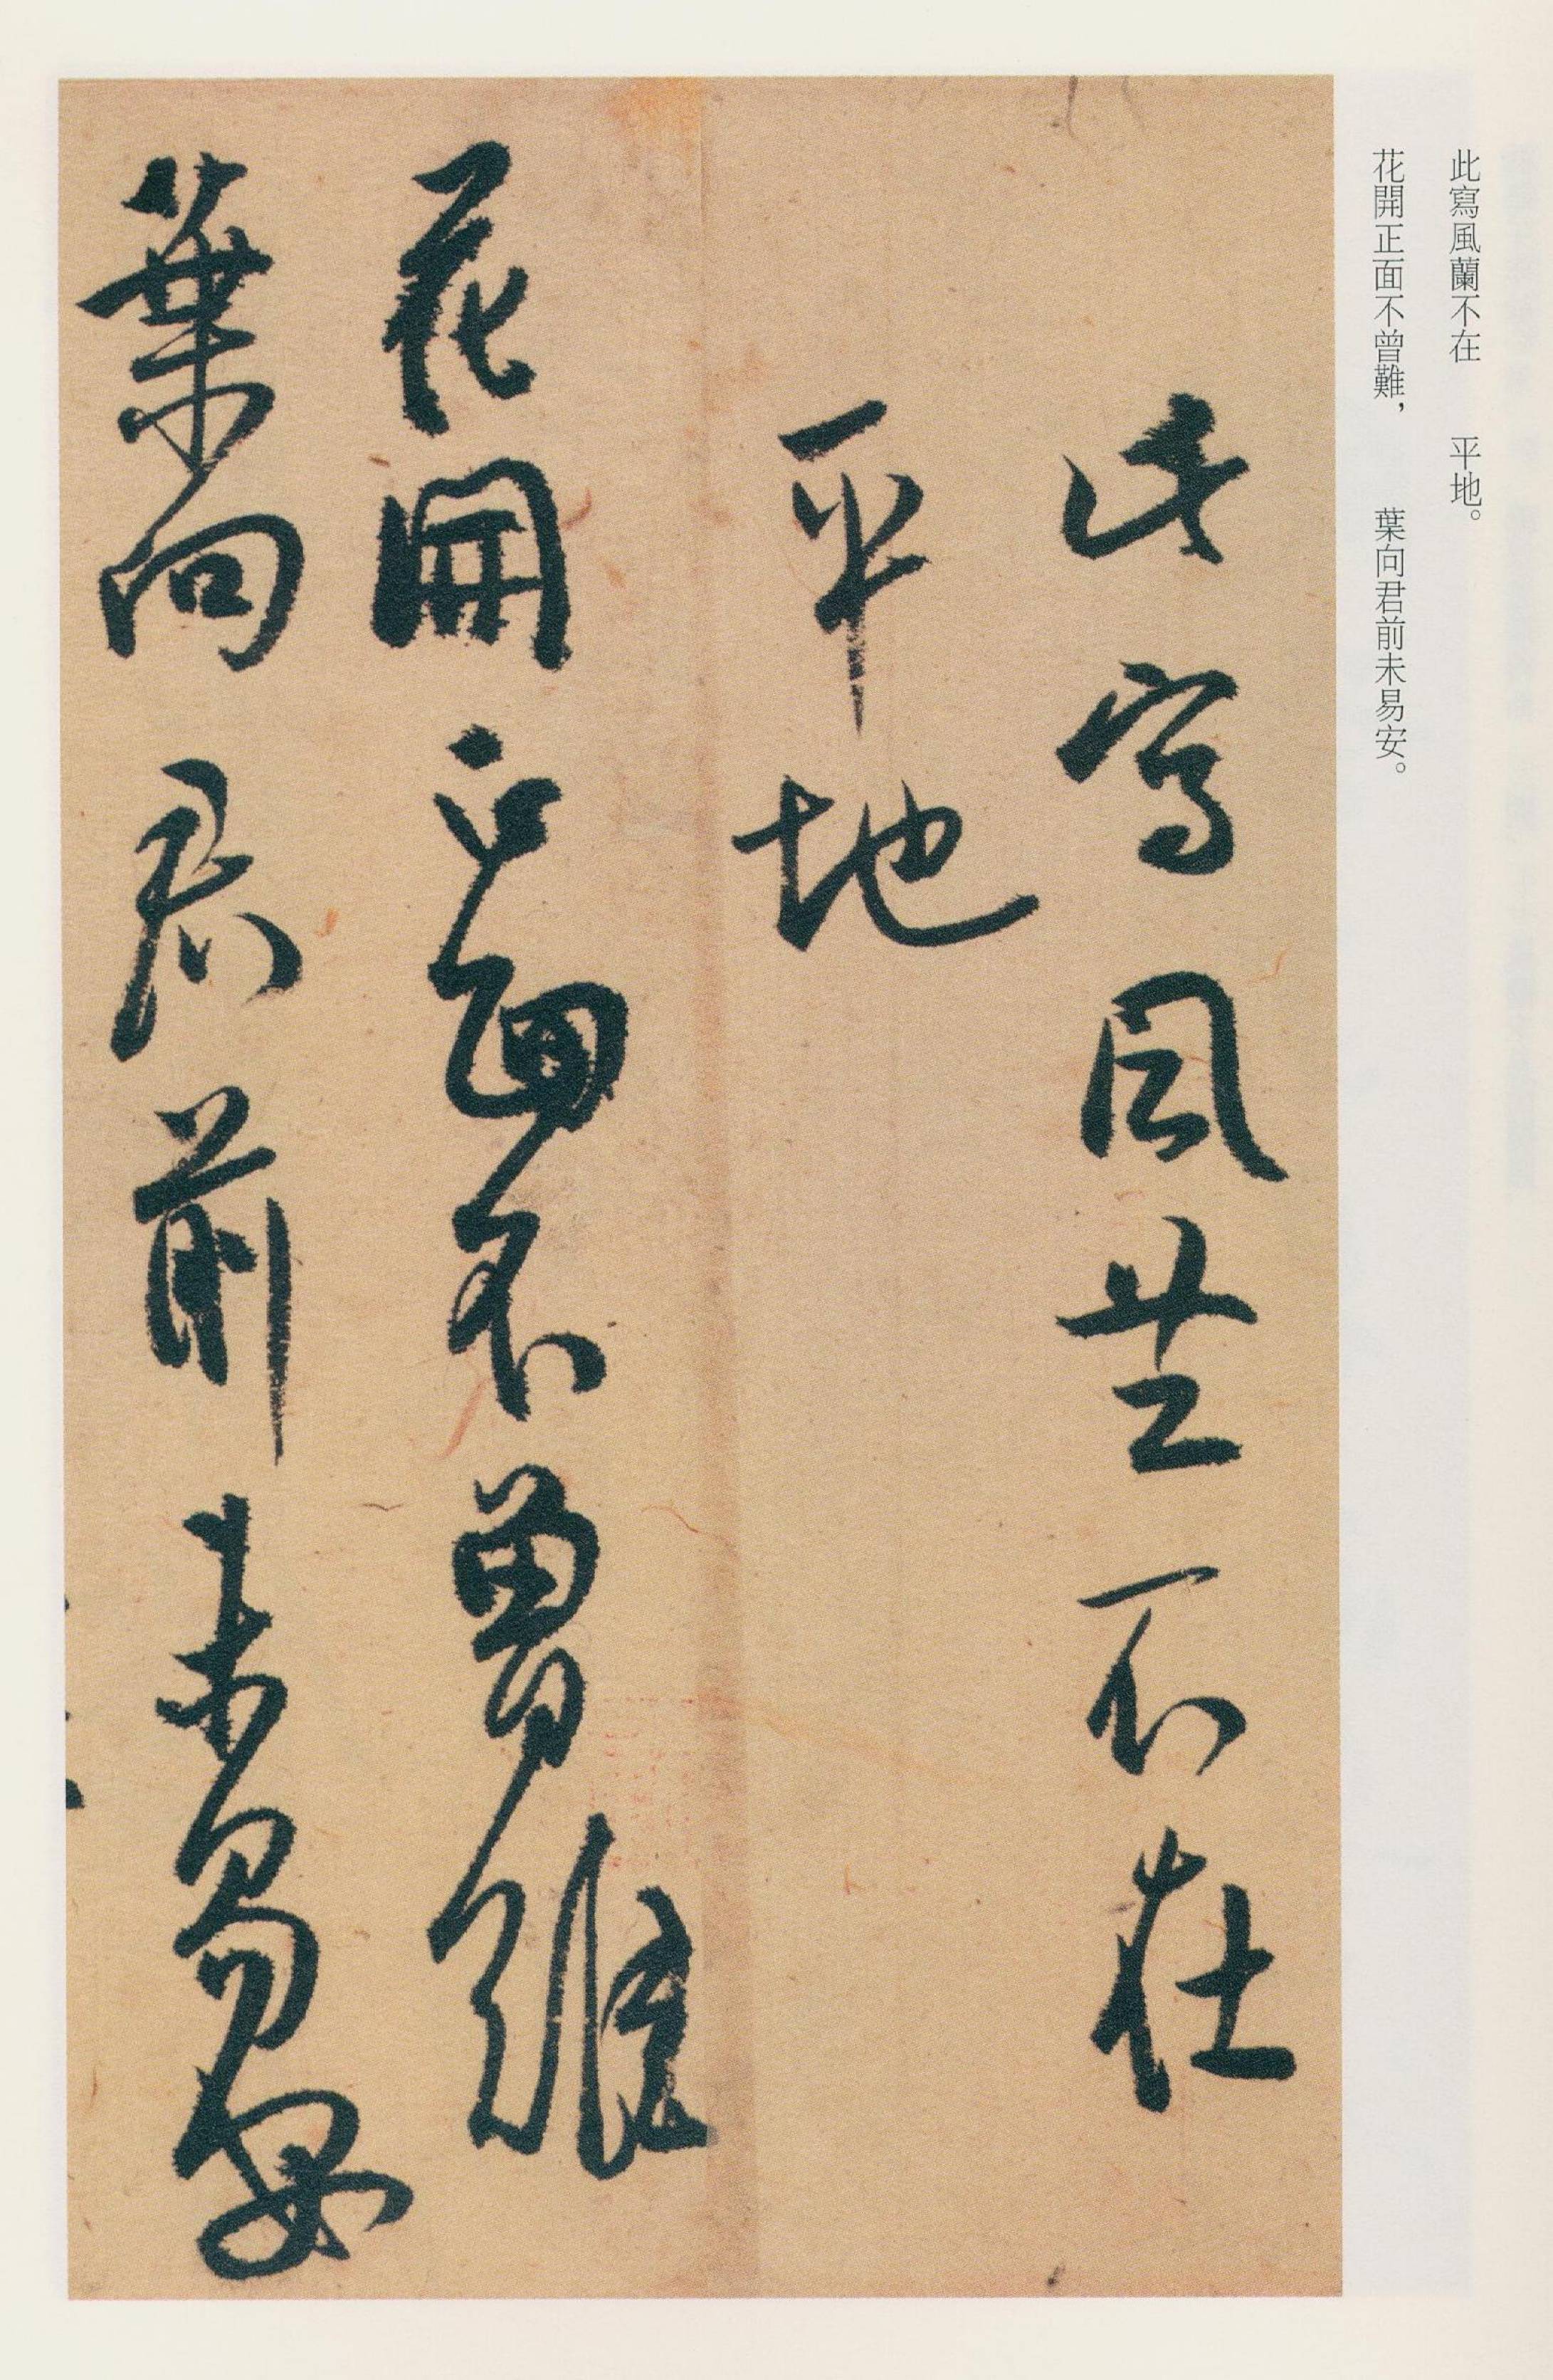 此寫風蘭不在 平地。
花開正面不曾難， 葉向君前未易安。
此寫風蘭不在
平地
花開正面不曾難
葉向君前未易安